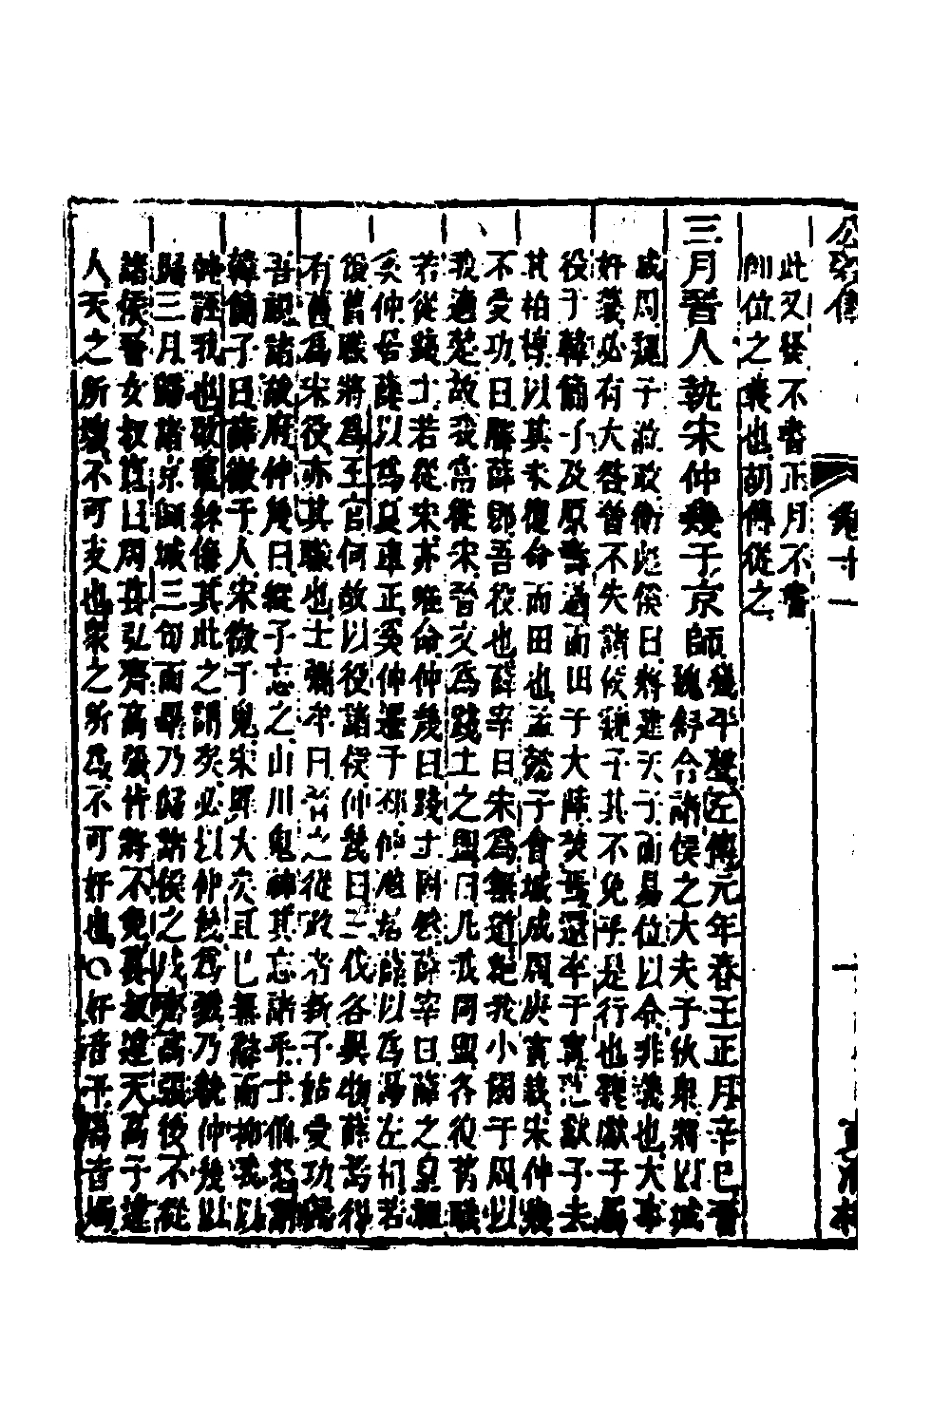 卷十一
此又發不書正月不書
即位之義也胡傳從之
三月晉人執宋仲幾于京師
幾平聲左傳元年春王正月辛巳晉
魏舒合諸侯之大夫于狄泉將以城
成周魏子涖政衛彪傒曰將建天子而易位以令非義也大事
奸義必有大咎晉不失諸侯魏子其不免乎是行也魏獻子屬
役于韓簡子及原壽過而田于大陸焚焉還卒于寗范獻子去
其柏椁以其未復命而田也孟懿子會城成周庚寅栽宋仲幾
不受功曰滕薛郳吾役也薛宰曰宋為無道絕我小國于周以
我適楚故我常從宋晉文為踐土之盟曰凡我同盟各復舊職
若從踐土若從宋亦唯命仲幾曰踐土固然薛宰曰薛之皇祖
奚仲居薛以為夏車正奚仲遷于邳仲虺居薛以為湯左相若
復舊職將為王官何故以役諸侯仲幾曰三代各異物薛焉得
有舊為宋役亦其職也士彌牟曰晉之從政者新子姑受功歸
吾視諸故府仲幾曰縱子忘之山川鬼神其忘諸乎士伯怒謂
韓簡子曰薛徵于人宋徵于鬼宋罪大矣且已無辭而抑我以
神誣我也啟寵納侮其此之謂矣必以仲幾為戮乃執仲幾以
歸三月歸諸京師城三旬而畢乃歸諸侯之戍齊高張後不從
諸侯晉女叔寬曰周萇弘齊高張皆將不免萇叔違天高子違
人天之所壞不可支也眾之所為不可奸也○奸音干